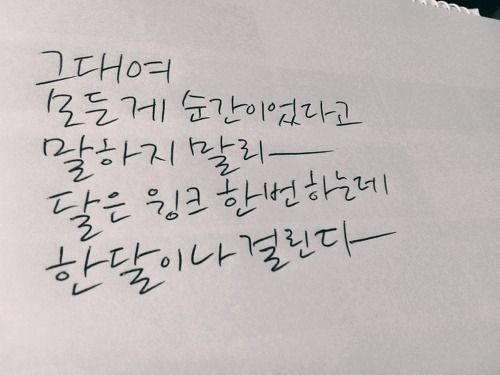 그대여
모든게 순간이었다고
말하지 말라
달은 윙크 한번 하는데
한달이나 걸린다